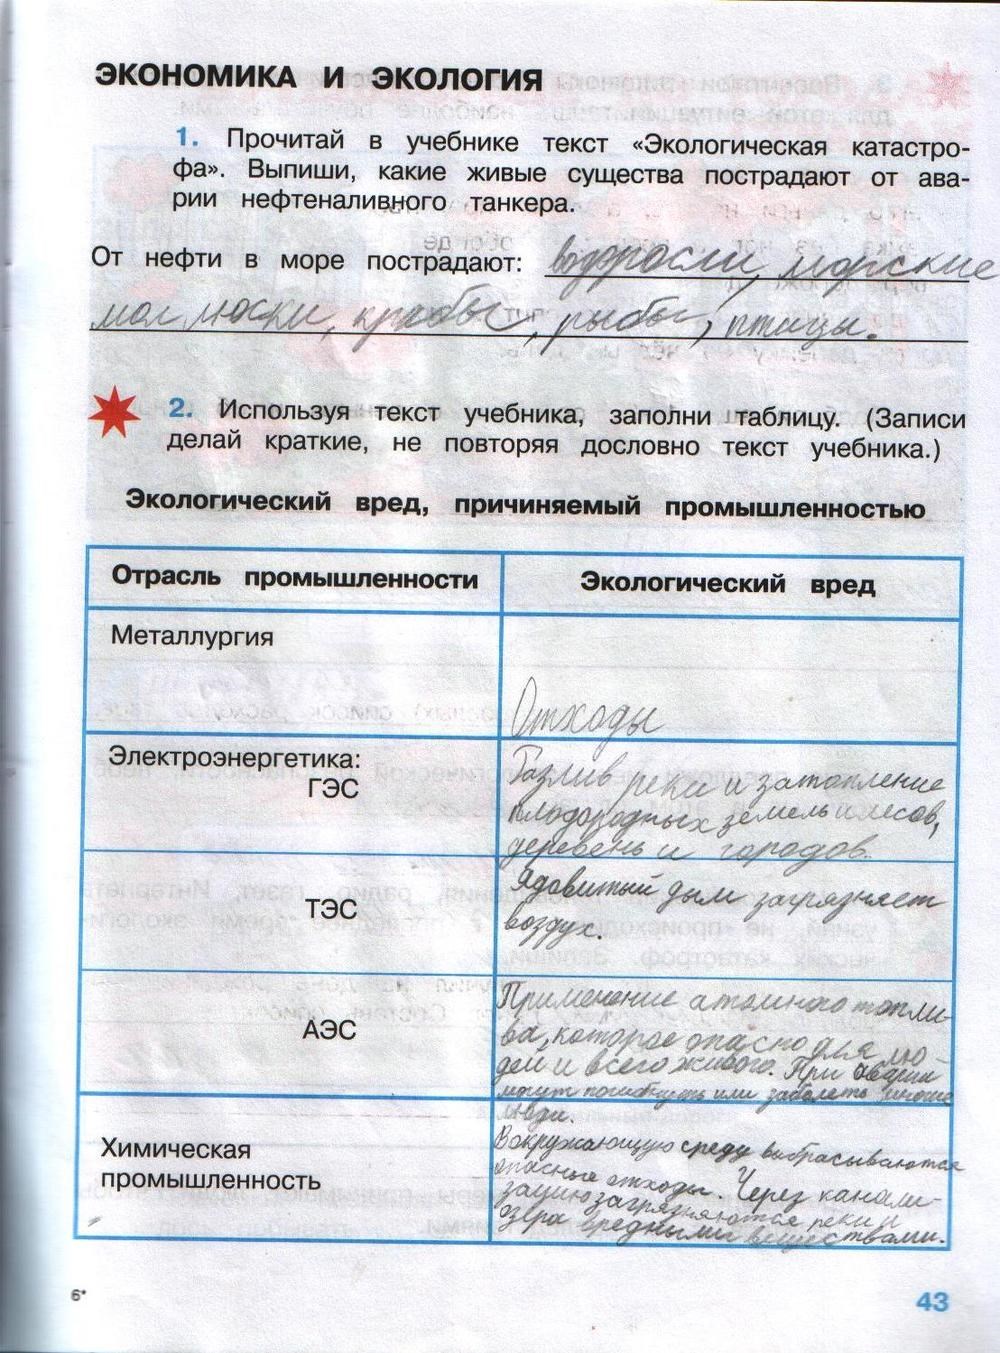 ЭКОНОМИКА И ЭКОЛОГИЯ
1. Прочитай в учебнике текст «Экологическая катастро-
фа». Выпиши, какие живые существа пострадают от ава-
рии нефтеналивного танкера.
От нефти в море пострадают: водоросли, морские
моллюски, крабы, рыбы, птицы.
2. Используя текст учебника, заполни таблицу. (Записи
делай краткие, не повторяя дословно текст учебника.)
Экологический вред, причиняемый промышленностью
Отрасль промышленности Экологический вред
Металлургия
Отходы
Электроэнергетика:
ГЭС
Разлив реки и затопление
плодородных земель и лесов,
деревень и городов.
ТЭС
Ядовитый дым загрязняет
воздух.
АЭС
Применение атомного топли-
ва, которое опасно для лю-
дей и всего живого. При аварии
могут погибнуть или заболеть многие
люди.
Химическая
промышленность
Вокружающую среду выбрасываются
опасные отходы. Через канали-
зацию загрязняются реки и
озера вредными веществами.
6*
43